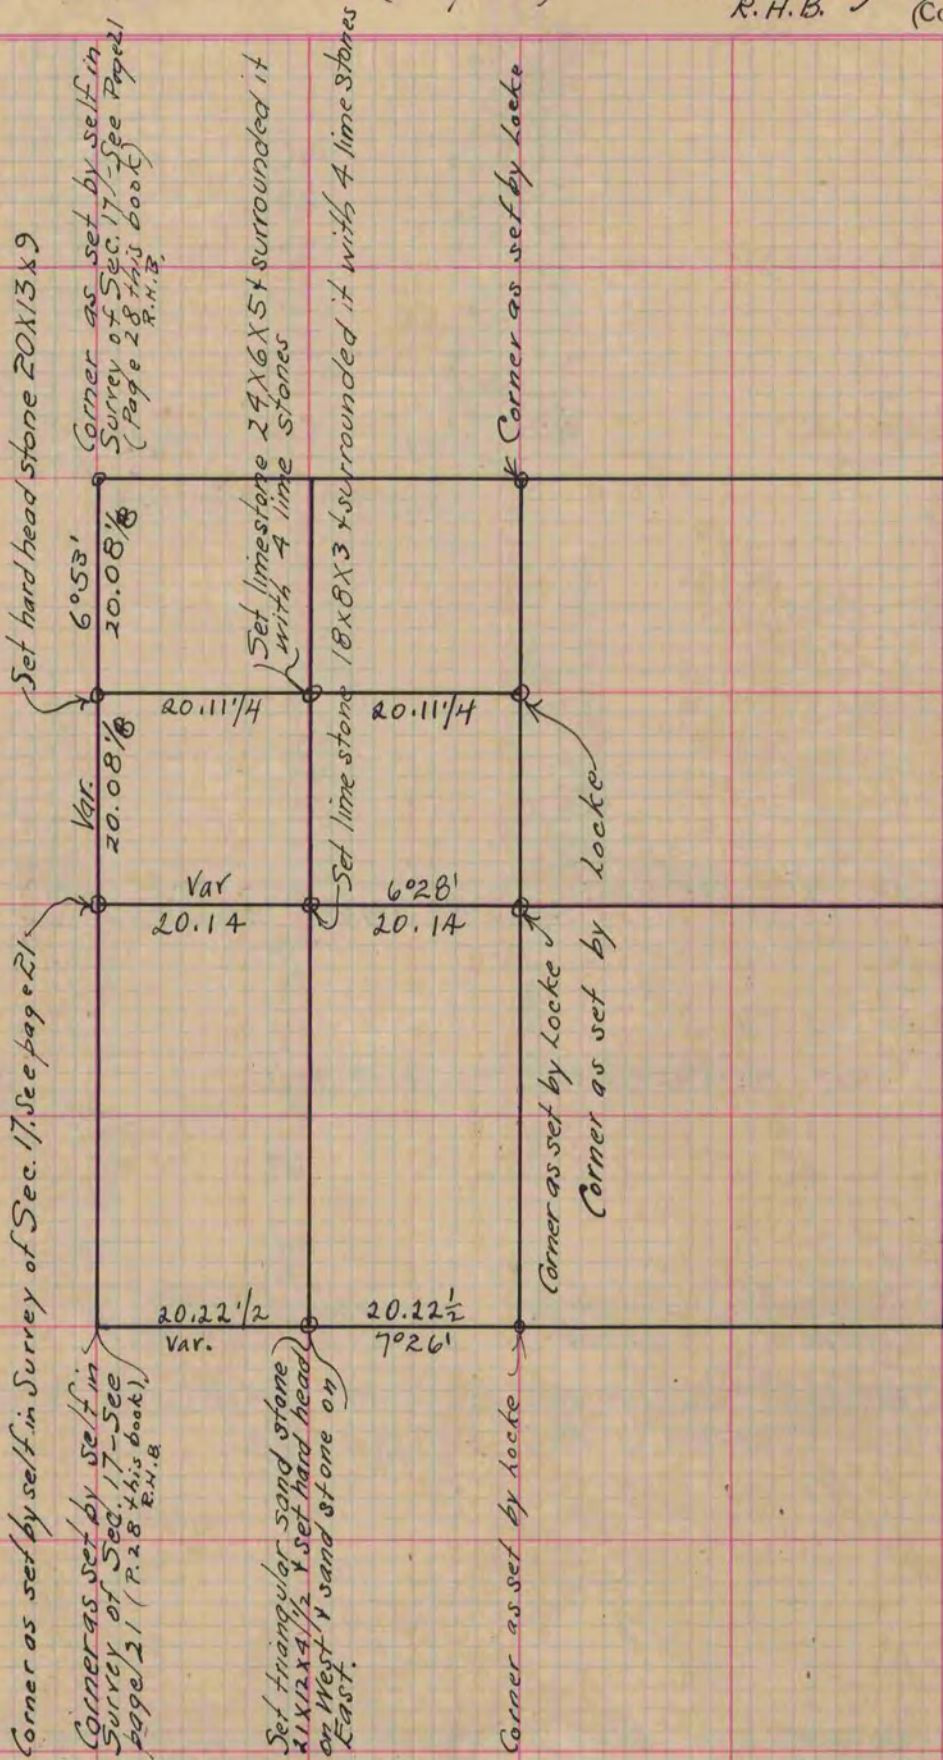 R.H.B.
(Co
Set hard head stone 20X13X9
Corner as set by self in
Survey of Sec. 17-See Page 21
(Page 28 this book)
R.H.B.
6°53'
20.08 1/8
Var.
20.08 1/8
Set limestone 24X6X5 & surrounded it
with 4 lime stones
Set lime stone 18X8X3 & surrounded it with 4 lime stones
Corner as set by Locke
20.11 1/4
20.11 1/4
Var
20.14
6°28'
20.14
Corner as set by self in Survey of Sec. 17. See page 21
Corner as set by Locke
Corner as set by Locke
20.22 1/2
Var.
20.22 1/2
7°26'
Corner as set by self in
Survey of Sec. 17-See
page 21 (P. 28 this book)
R.H.B.
Set triangular sand stone
21X12X4 1/2 & set hard head
on West & sand stone on
East.
Corner as set by Locke